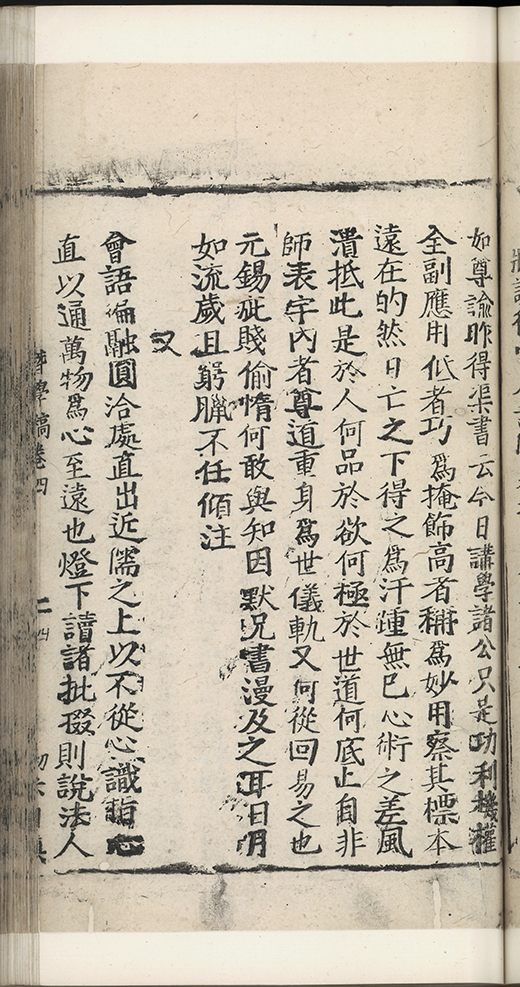 如尊諭昨得渠書云今日講學諸公只是功利機權
全副應用低者巧爲掩飾高者稱爲妙用察其標本
遠在的然日亡之下得之爲汗踵無已心術之差風
潰抵此是於人何品於欲何極於世道何底止自非
師表宇內者尊道重身爲世儀軌又何從回易之也
元錫疵賤偷惰何敢與知因默况書漫及之耳日明
如流歲且窮臘不任傾注
又
會語徧融圓洽處直出近儒之上以不從心識指
直以通萬物爲心至遠也燈下讀諸批啜則說法人
稿卷四